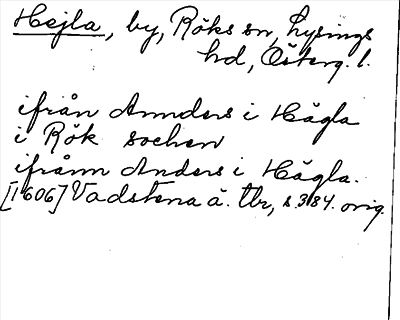 Hejla, by, Röks sn, Lysings
hd, Österg. l.
ifrån Annders i Hägla
i Rök sochen
ifrånn Anders i Hägla.
[1606] Vadstena ä. tbr, s. 384. orig.